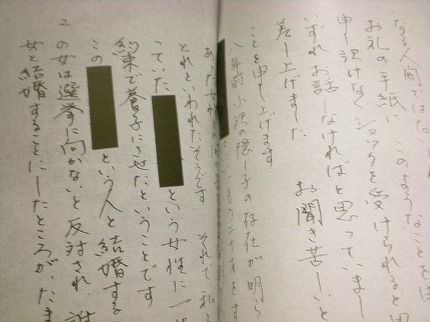 な人間ではな
お礼の手紙に このようなことを
申し訳けなく ショックを受けられると
いずれお話しなければと思っていまし
差し上げました お聞き苦しいと
ことを申し上げます
八年前小沢の隠し子の存在が明ら
とれといわれたそうです それで私と
っていた という女性に一
約束で養子にさせたということです
この という人と結婚する
この女は選挙に向かないと反対され、誰
女と結婚することにしたところが、たま